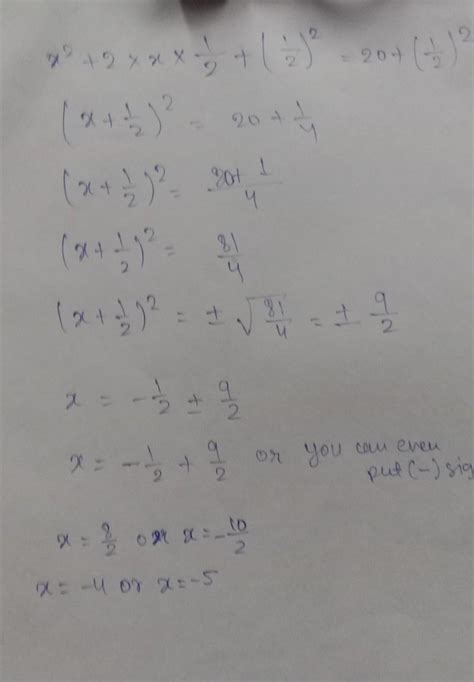 x² + 2 × x × 1/2 + (1/2)² = 20 + (1/2)²
(x + 1/2)² = 20 + 1/4
(x + 1/2)² = 80 + 1/4
(x + 1/2)² = 81/4
(x + 1/2)² = ± √81/4 = ± 9/2
x = -1/2 ± 9/2
x = -1/2 + 9/2 or you can even
put (-) sig
x = 8/2 or x = -10/2
x = -4 or x = -5